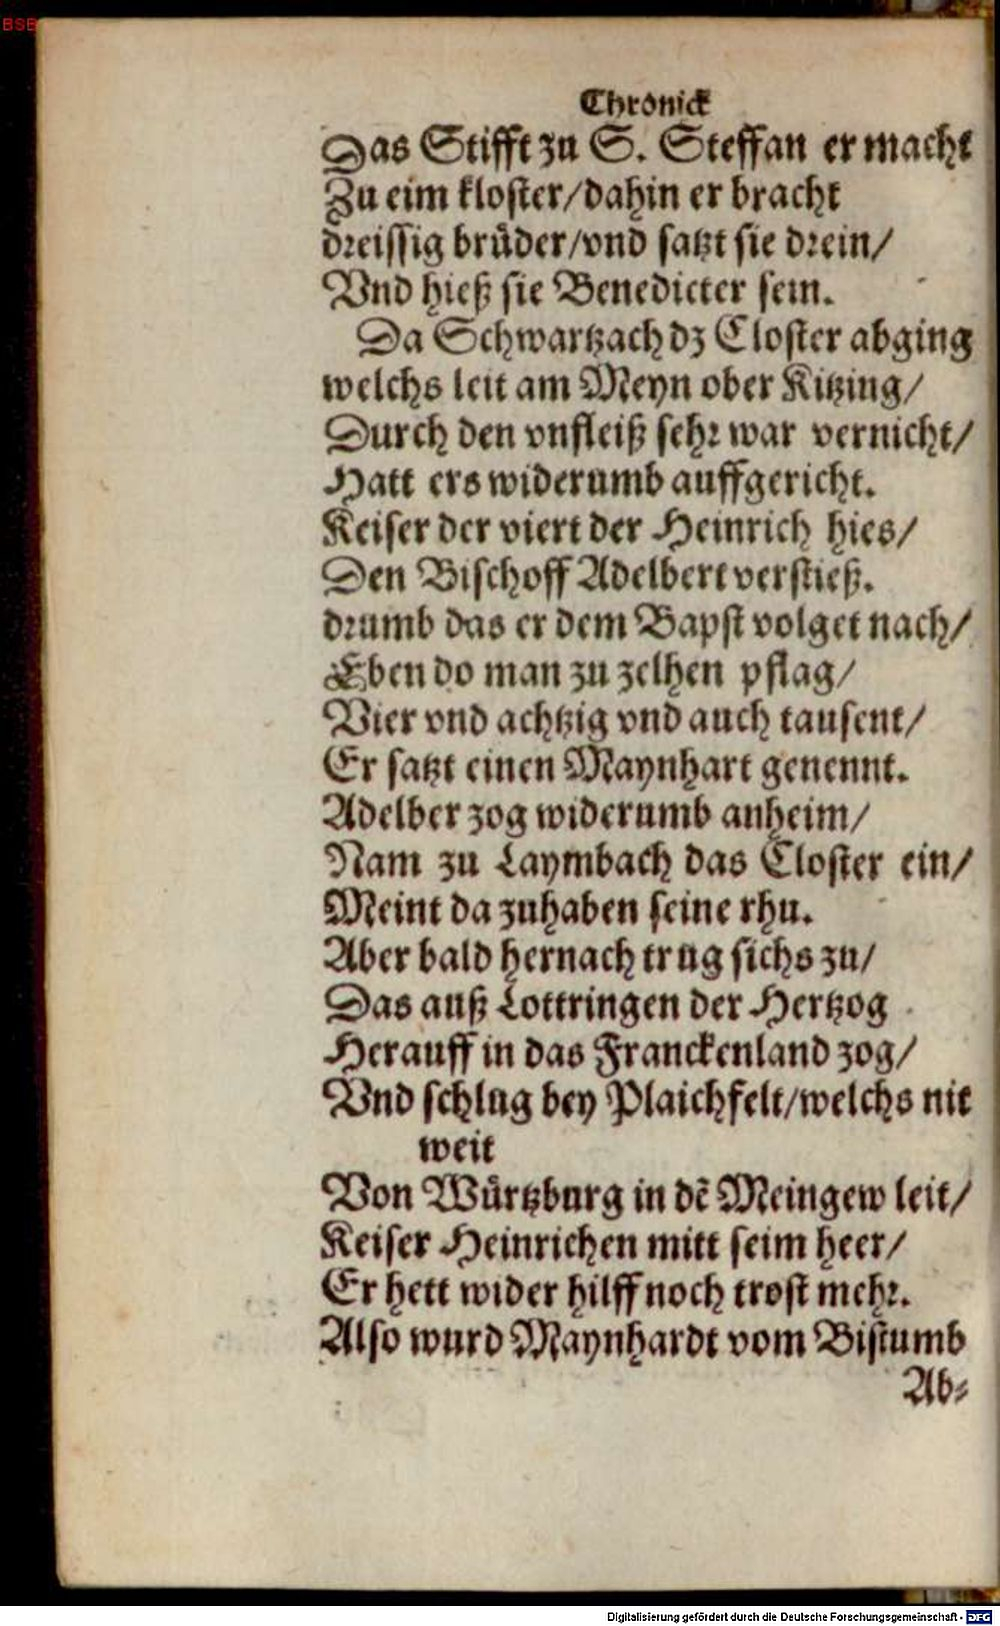 BSB
Chronick
Das Stifft zu S. Steffan er macht
Zu eim kloster/dahin er bracht
dreissig brüder/vnd satzt sie drein/
Vnd hieß sie Benedicter sein.
Da Schwartzach dz Closter abging
welchs leit am Meyn ober Kitzing/
Durch den vnfleiß sehr war vernicht/
Hatt ers widerumb auffgericht.
Keiser der viert der Heinrich hies/
Den Bischoff Adelbert verstieß.
drumb das er dem Bapst volget nach/
Eben do man zu zelhen pflag/
Vier vnd achtzig vnd auch tausent/
Er satzt einen Maynhart genennt.
Adelber zog widerumb anheim/
Nam zu Laymbach das Closter ein/
Meint da zuhaben seine rhu.
Aber bald hernach trug sichs zu/
Das auß Lottringen der Hertzog
Herauff in das Franckenland zog/
Vnd schlug bey Plaichfelt/welchs nit
weit
Von Würtzburg in dẽ Meingew leit/
Keiser Heinrichen mitt seim heer/
Er hett wider hilff noch trost mehr.
Also wurd Maynhardt vom Bistumb
Ab⸗
Digitalisierung gefördert durch die Deutsche Forschungsgemeinschaft - DFG